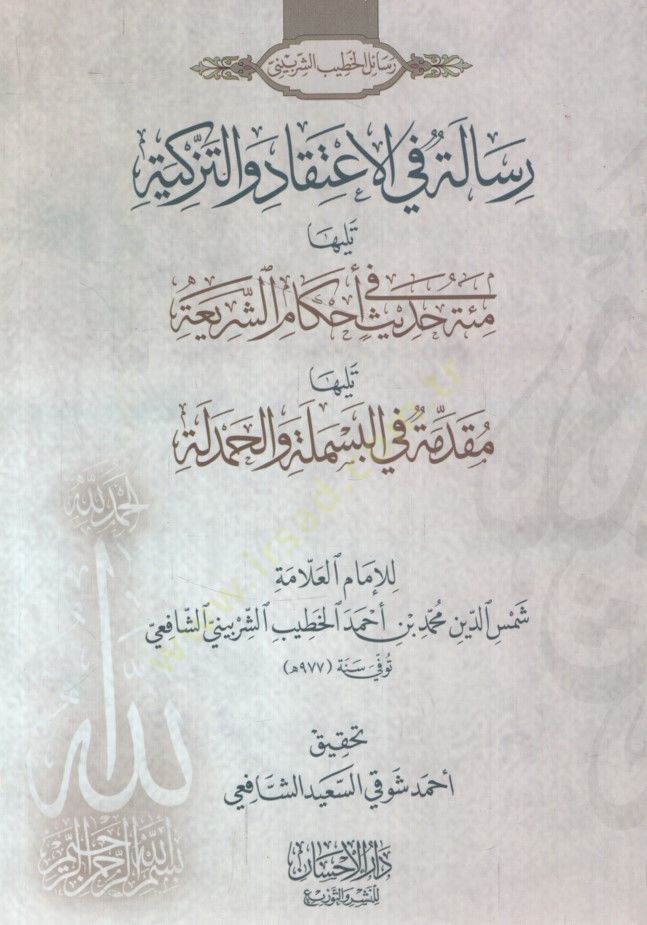 رسائل الخطيب الشربيني
رِسَالَةٌ فِي الاِعْتِقَادِ وَالتَّزْكِيَةِ
تَلِيهَا
مِئَةُ حَدِيثٍ فِي أَحْكَامِ الشَّرِيعَةِ
تَلِيهَا
مُقَدِّمَةٌ فِي البَسْمَلَةِ وَالحَمْدَلَةِ
الحمد لله
لِلإِمَامِ العَلَّامَةِ
شَمْسِ الدِّينِ مُحَمَّدِ بْنِ أَحْمَدَ الخَطِيبِ الشِّرْبِينِيِّ الشَّافِعِيِّ
تُوُفِّيَ سَنَةَ (٩٧٧هـ)
تحقيق
أحمد شوقي السَّعيد الشَّافعي
الله
بسم الله الرحمن الرحيم
دَارُ الإِحْسَانِ
لِلنَّشْرِ وَالتَّوْزِيعِ
www.irsad.com.tr